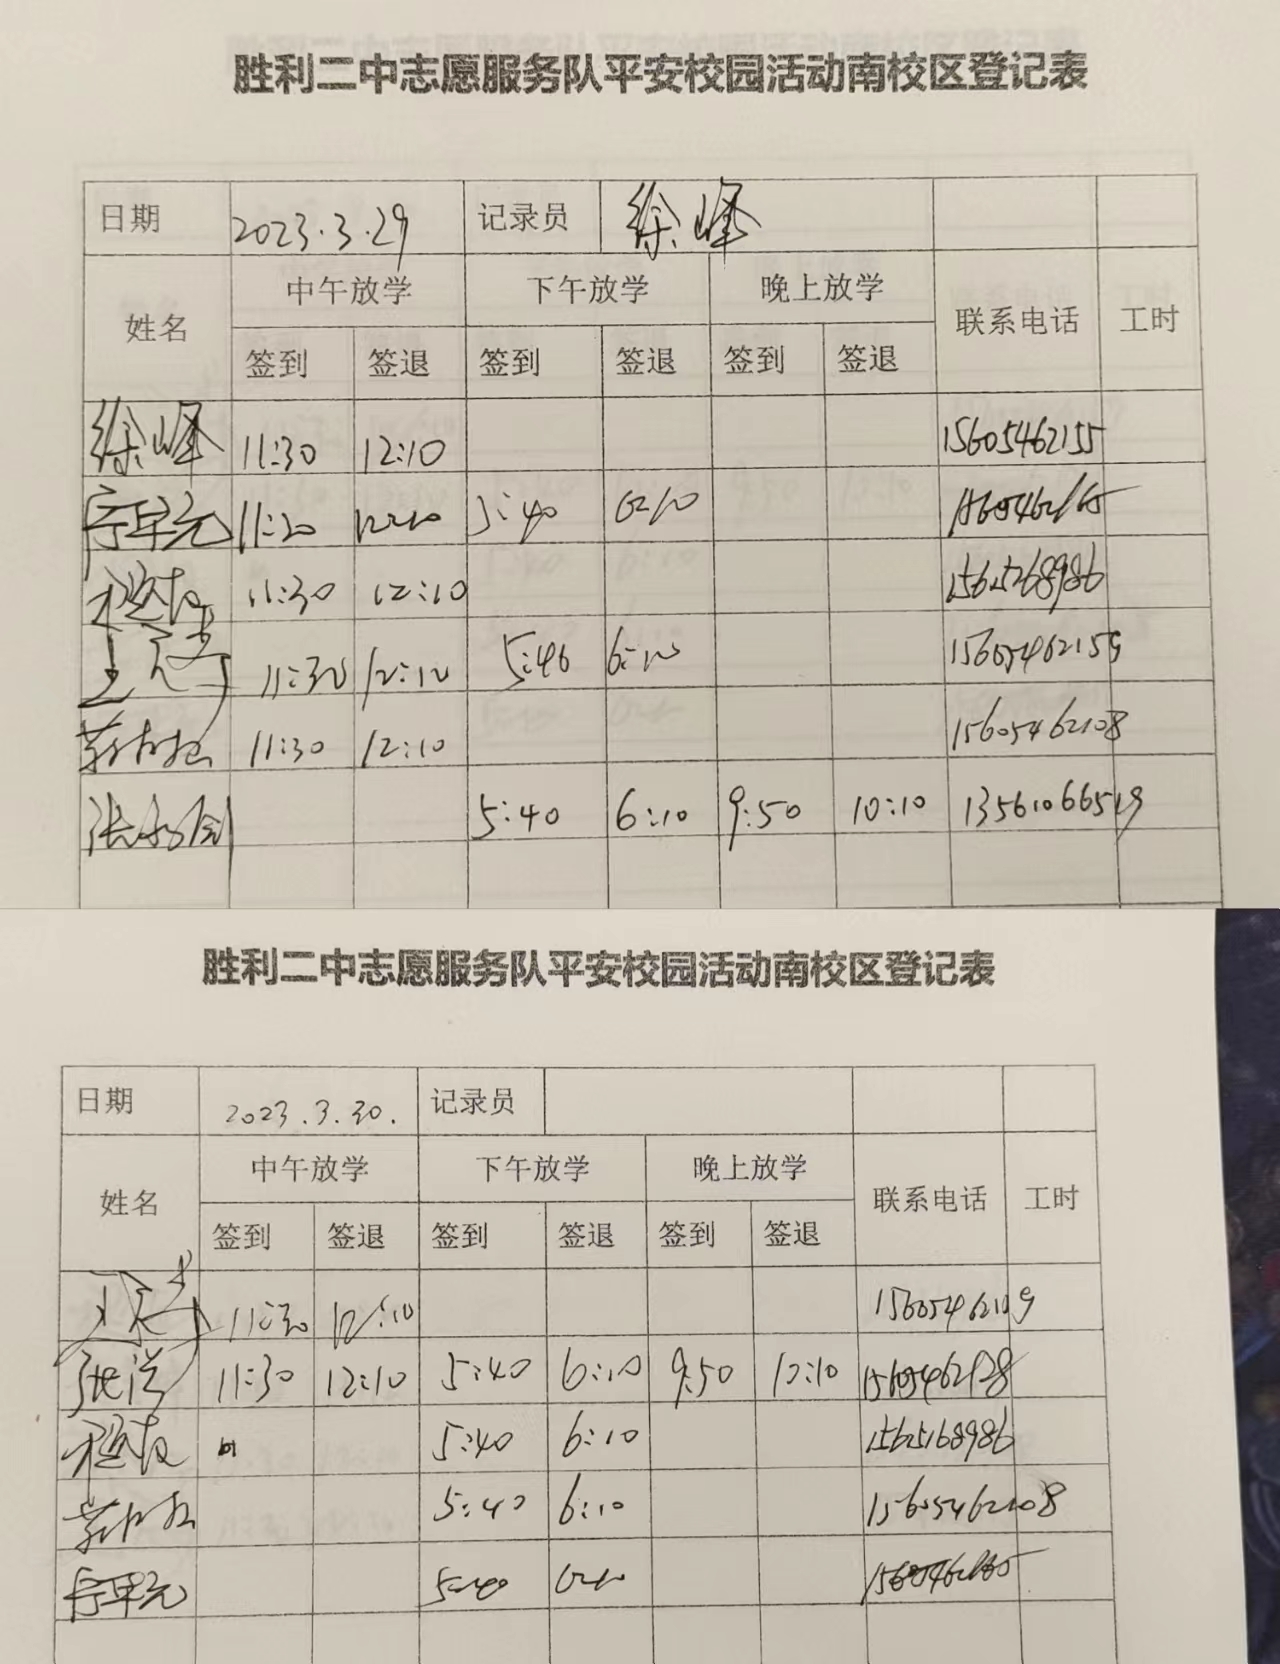 胜利二中志愿服务队平安校园活动南校区登记表
日期 2023.3.29 记录员 徐峰
姓名 中午放学 下午放学 晚上放学 联系电话 工时
签到 签退 签到 签退 签到 签退
徐峰 11:30 12:10 15605462155
11:30 12:10 5:40 6:10
11:30 12:10
11:30 12:10 5:40 6:10 15605462159
11:30 12:10 15605462108
5:40 6:10 9:50 10:10 13561066519
胜利二中志愿服务队平安校园活动南校区登记表
日期 2023.3.30. 记录员
姓名 中午放学 下午放学 晚上放学 联系电话 工时
签到 签退 签到 签退 签到 签退
11:30 12:10
11:30 12:10 5:40 6:10 9:50 10:10
5:40 6:10 15625168986
5:40 6:10 15605462108
5:40 6:10